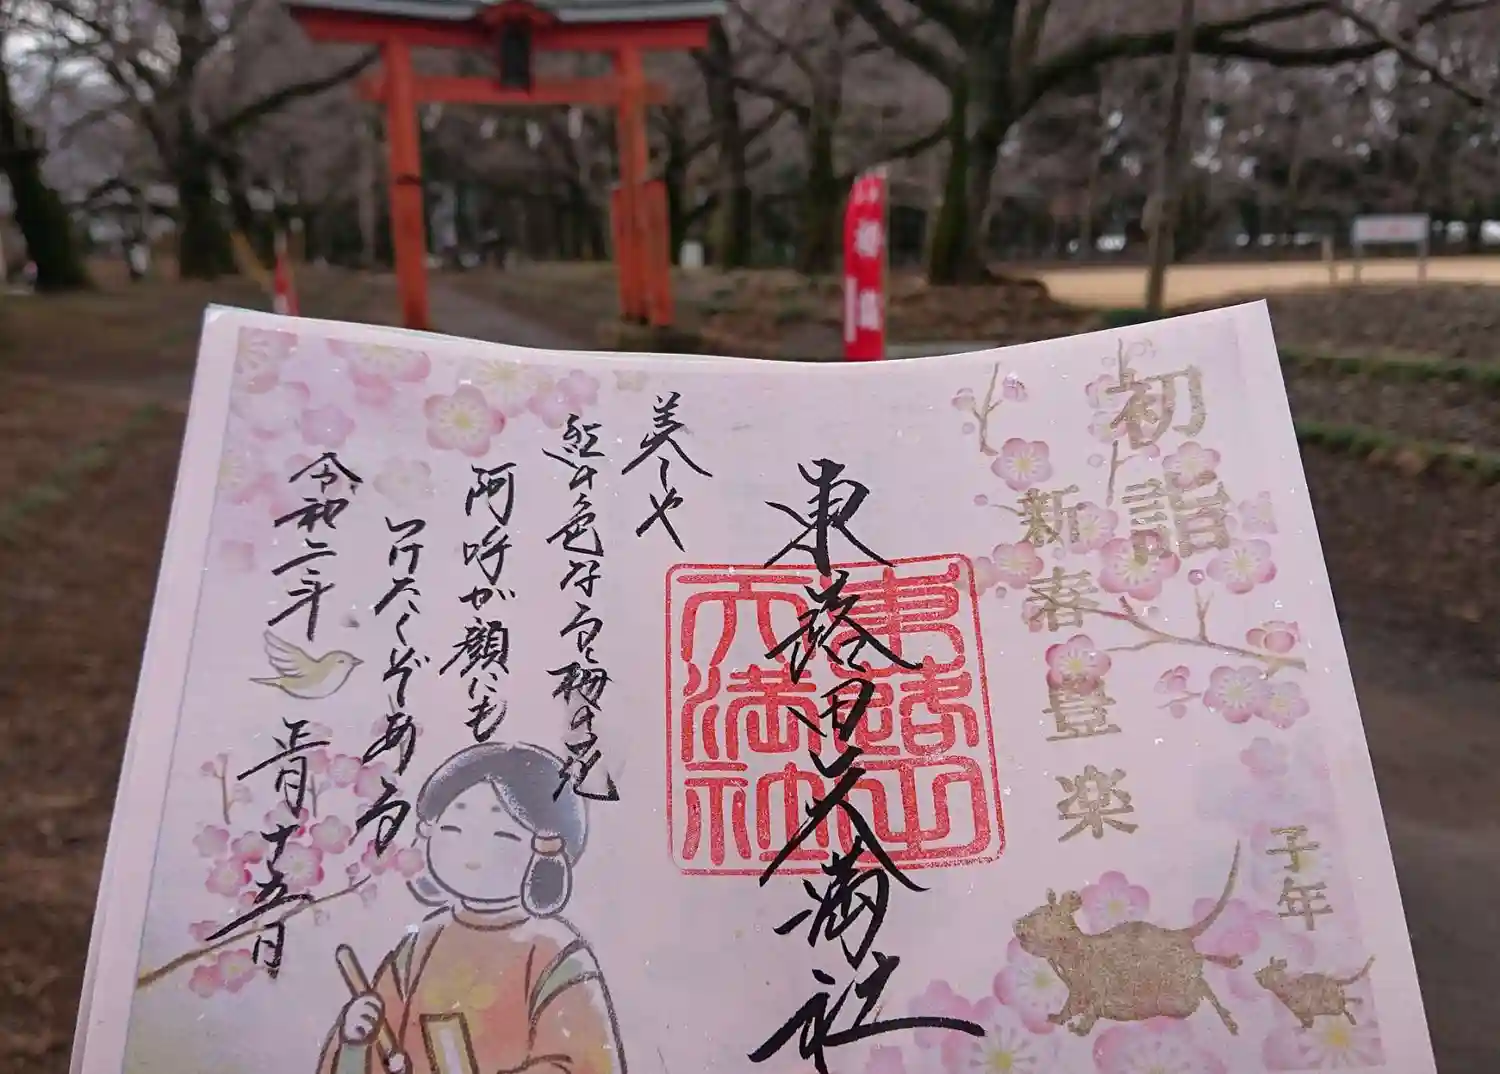 初詣
新春豊楽
子年
東蕗田天満社
東蕗田
天満社
美しや
紅の色なる梅の花
阿呼が顔にも
つけたくぞある
令和二年
正月十五日
初詣